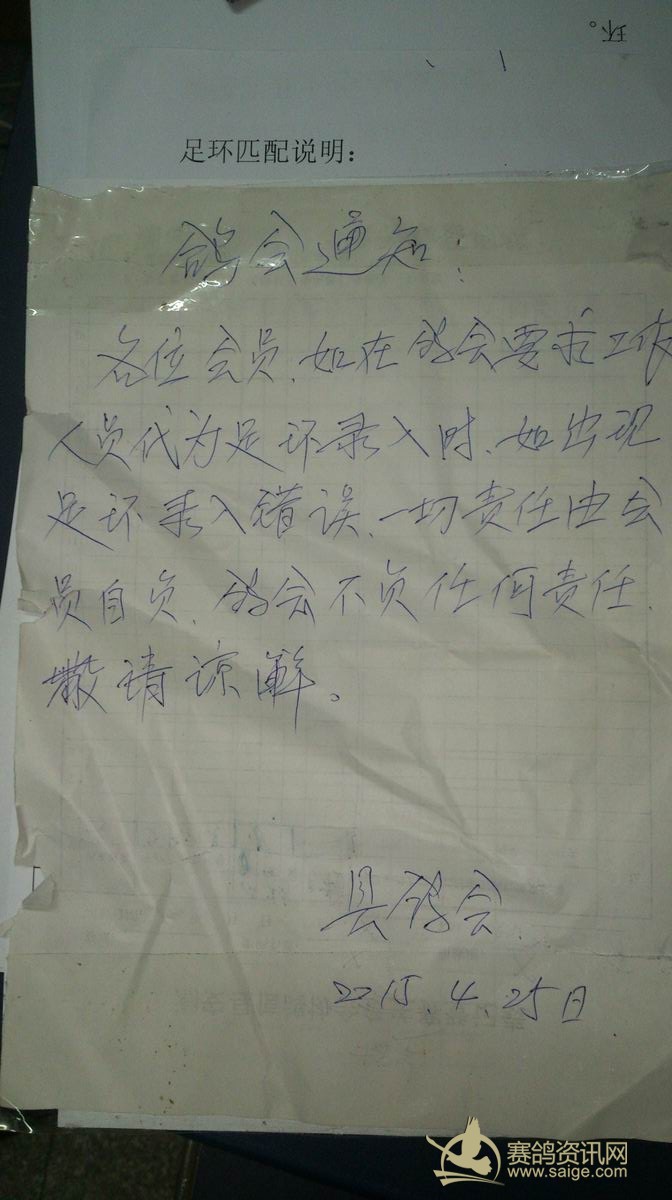 环。
足环匹配说明：
鸽会通知：
各位会员、如在鸽会要求工作
人员代为足环录入时、如出现
足环录入错误、一切责任由会
员自负、鸽会不负任何责任、
敬请谅解。
县鸽会
2015.4.25日
赛鸽资讯网
www.saige.com